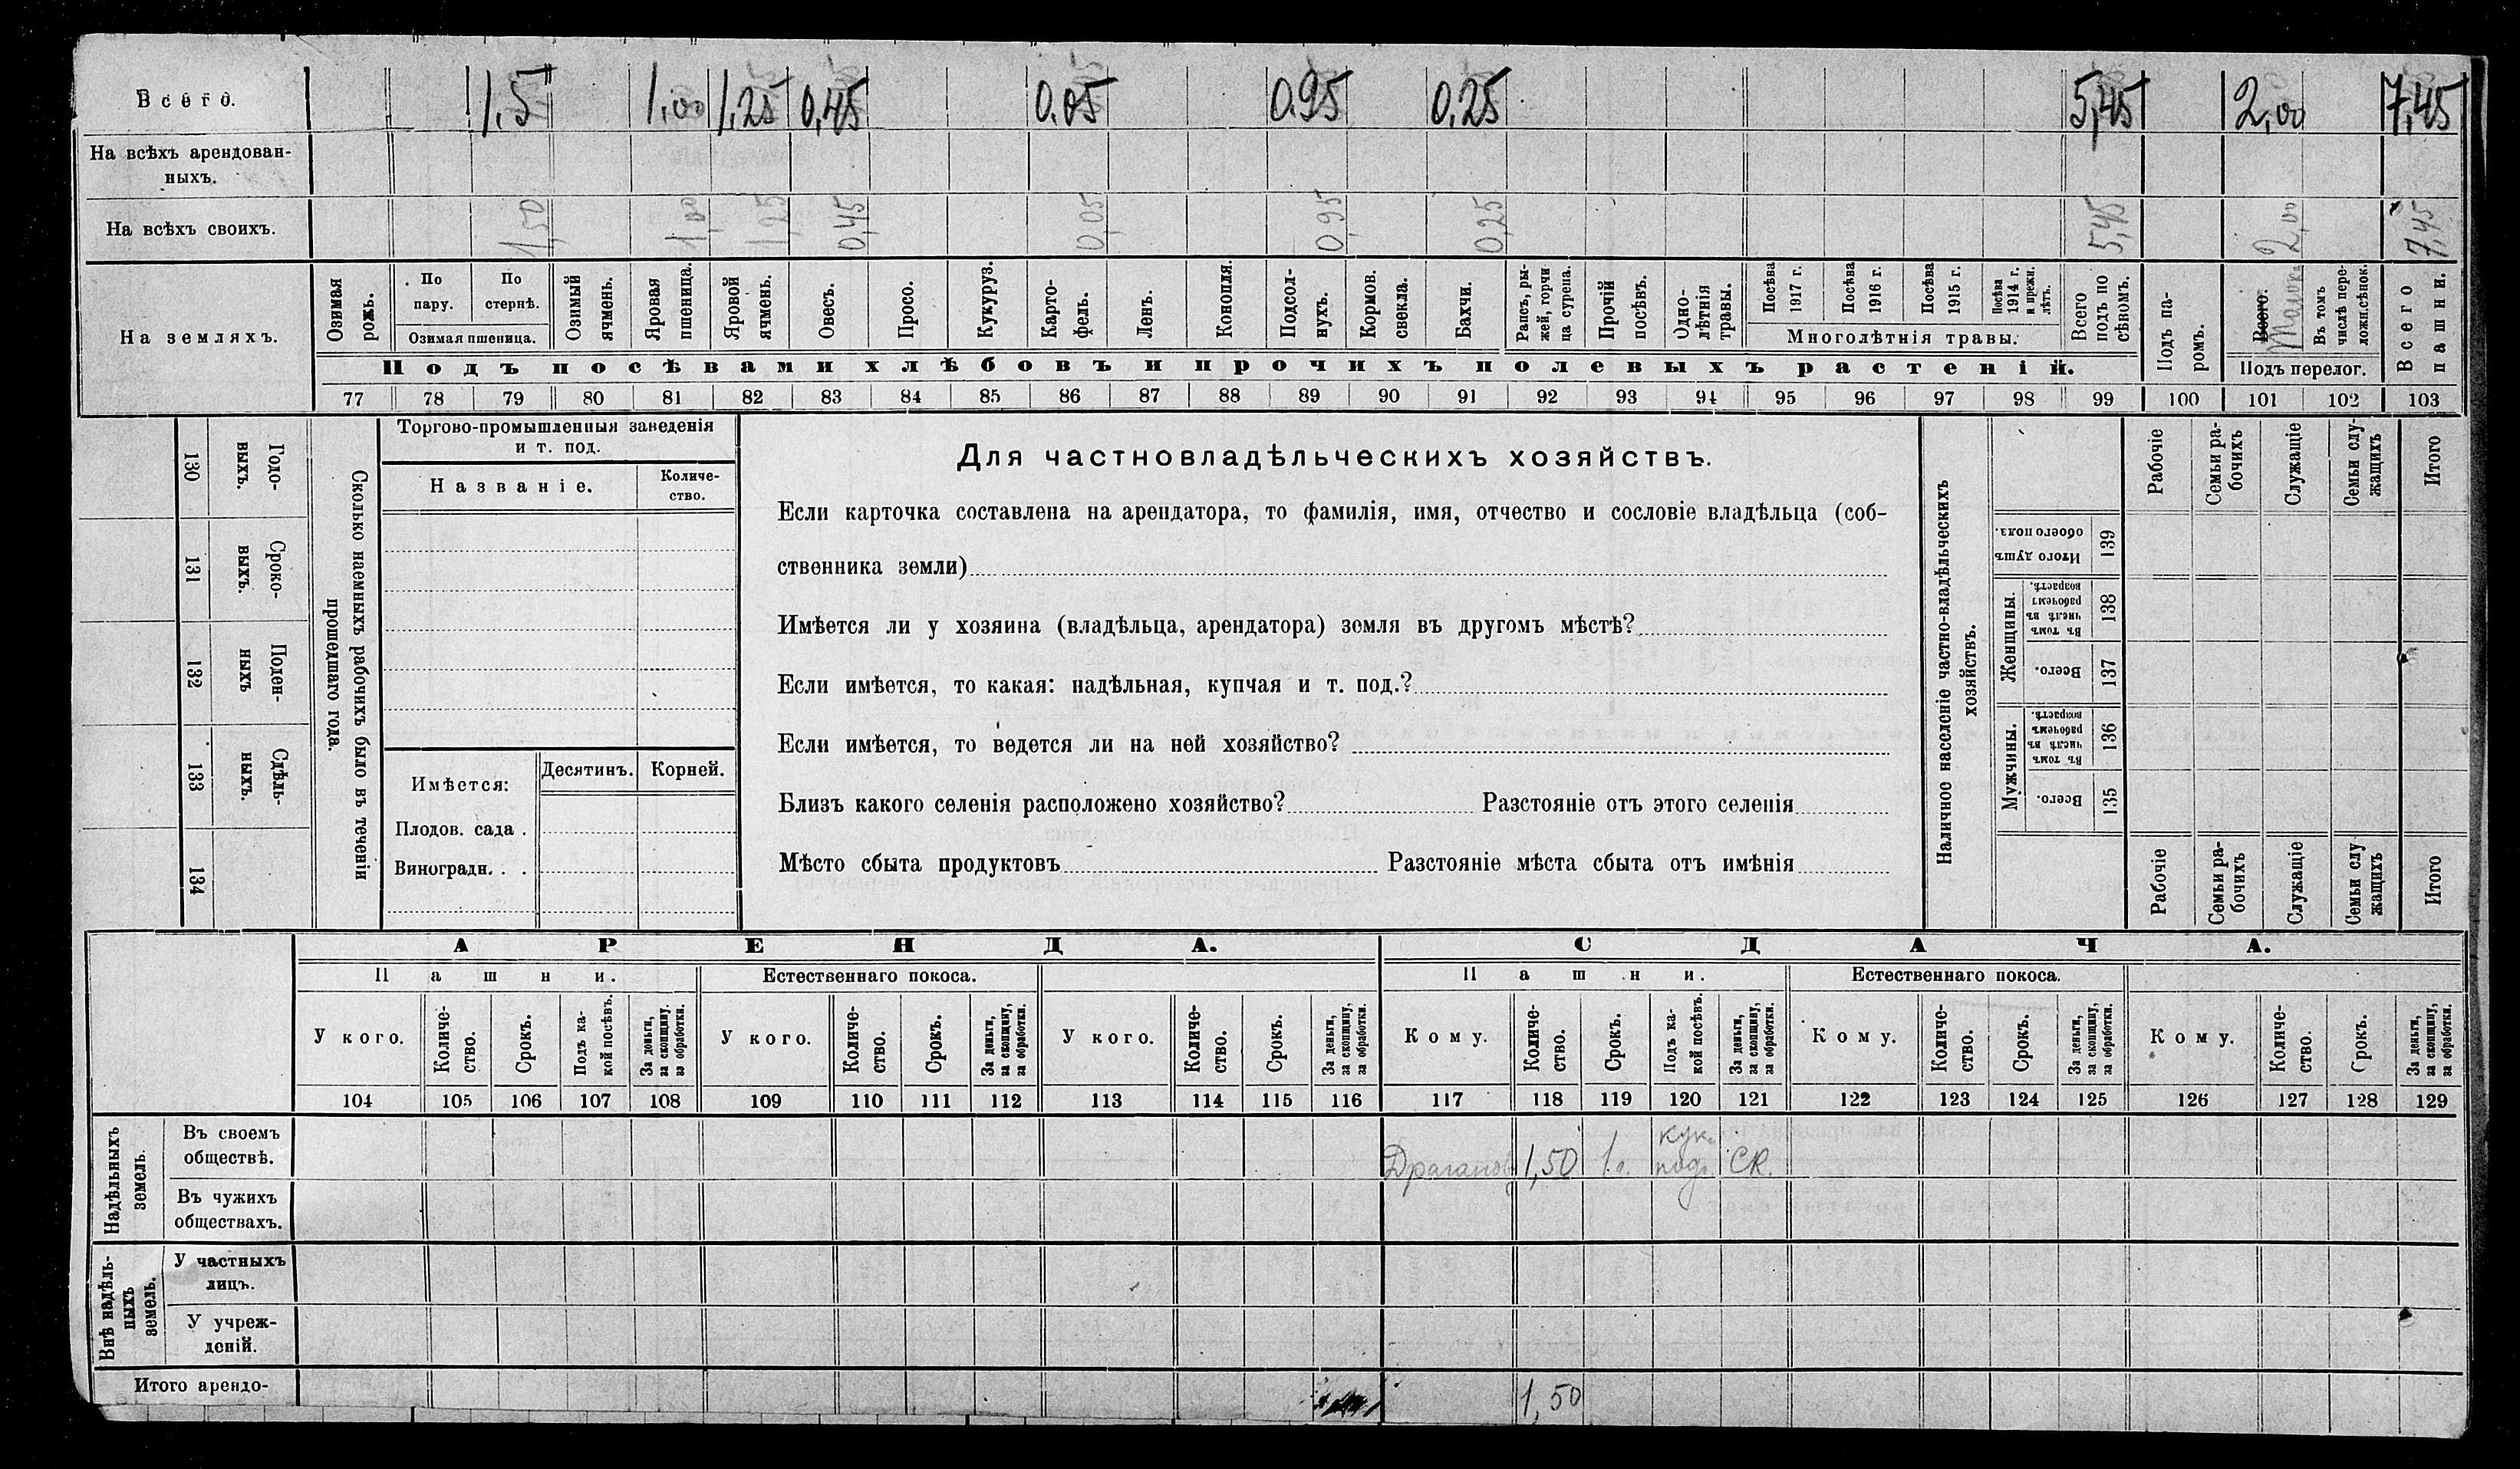 Всего. 1,5 1,00 1,25 0,45 0.05 0.95 0,25 5,45 2,00 7,45
На всѣхъ арендован-
ныхъ.
На всѣхъ своихъ. 1,50 1,00 1,25 0,45 0,05 0,95 0,25 5,45 2,00 7,45
На земляхъ.
Озимая рожь.
По пару.
По стернѣ.
Озимая пшеница.
Озимый ячмень.
Яровая пшеница.
Яровой ячмень.
Овесъ.
Просо.
Кукуруз.
Карто-
фель.
Ленъ.
Конопля.
Подсол-
нухъ.
Кормов. свекла.
Бахчи.
Рапсъ, ры-
жей, горчи
ца сурепа.
Прочій посѣвъ.
Одно-
лѣтнія
травы.
Посѣва 1917 г.
Посѣва 1916 г.
Посѣва 1915 г.
Посѣва 1914 г. и прежн. лѣтъ.
Многолѣтнія травы.
Всего подъ по
сѣвомъ.
Подъ па-
ромъ.
Всего.
Въ томъ числѣ пере-
ложн.сѣнок.
Подъ перелог.
Всего пашни.
Подъ посѣвами хлѣбовъ и прочихъ полевыхъ растеній.
77 78 79 80 81 82 83 84 85 86 87 88 89 90 91 92 93 94 95 96 97 98 99 100 101 102 103
130 Годо-
выхъ.
131 Сроко-
выхъ.
132 Поден-
ныхъ
133 Сдѣль-
ныхъ.
134
Сколько наемныхъ рабочихъ было въ теченіи
прошедшаго года.
Торгово-промышленныя заведенія
и т. под.
Названіе.
Количе-
ство.
Имѣется:
Десятинъ. Корней.
Плодов. сада .
Виноградн. . .
Для частновладѣльческихъ хозяйствъ.
Если карточка составлена на арендатора, то фамилія, имя, отчество и сословіе владѣльца (соб-
ственника земли)
Имѣется ли у хозяина (владѣльца, арендатора) земля въ другомъ мѣстѣ?
Если имѣется, то какая: надѣльная, купчая и т. под.?
Если имѣется, то ведется ли на ней хозяйство?
Близъ какого селенія расположено хозяйство? Разстояніе отъ этого селенія
Мѣсто сбыта продуктовъ Разстояніе мѣста сбыта отъ имѣнія
Наличное населеніе частно-владѣльческихъ
хозяйствъ.
Рабочіе
Семьи ра-
бочихъ
Служащіе
Семьи слу-
жащихъ
Итого
Итого душъ обоего пола. 139
Женщины.
Въ томъ числѣ въ рабочемъ возрастѣ. 138
Всего. 137
Мужчины.
Въ томъ числѣ въ рабочемъ возрастѣ. 136
Всего. 135
Рабочіе
Семьи ра-
бочихъ
Служащіе
Семьи слу
жащихъ
Итого
АРЕНДА. СДАЧА.
Пашни. Естественнаго покоса. Пашни. Естественнаго покоса.
У кого.
Количе-
ство.
Срокъ.
Подъ ка-
кой посѣвъ.
За деньги,
за скопщину,
за обработки.
У кого.
Количе-
ство.
Срокъ.
За деньги,
за скопщину,
за обработки.
У кого.
Количе-
ство.
Срокъ.
За деньги,
за скопщину,
за обработки.
Кому.
Количе-
ство.
Срокъ.
Подъ ка-
кой посѣвъ.
За деньги,
за скопщину,
за обработки.
Кому.
Количе-
ство.
Срокъ.
За деньги,
за скопщину,
за обработки.
Кому.
Количе-
ство.
Срокъ.
За деньги,
за скопщину,
за обработки.
104 105 106 107 108 109 110 111 112 113 114 115 116 117 118 119 120 121 122 123 124 125 126 127 128 129
Надѣльныхъ
земель.
Въ своемъ
обществѣ.
кук.
Драганов 1,50 1 г. подс. СК.
Въ чужихъ
обществахъ.
Внѣ надѣль-
ныхъ
земель.
У частныхъ
лицъ.
У учреж-
деній.
Итого арендо- 1,50